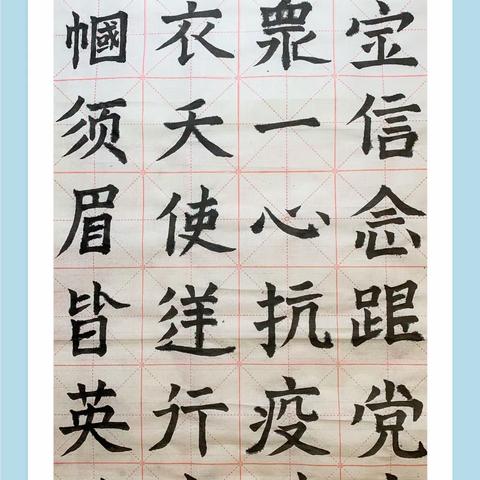 定信念跟党
衆一心抗疫
衣天使逆行
幗须眉皆英